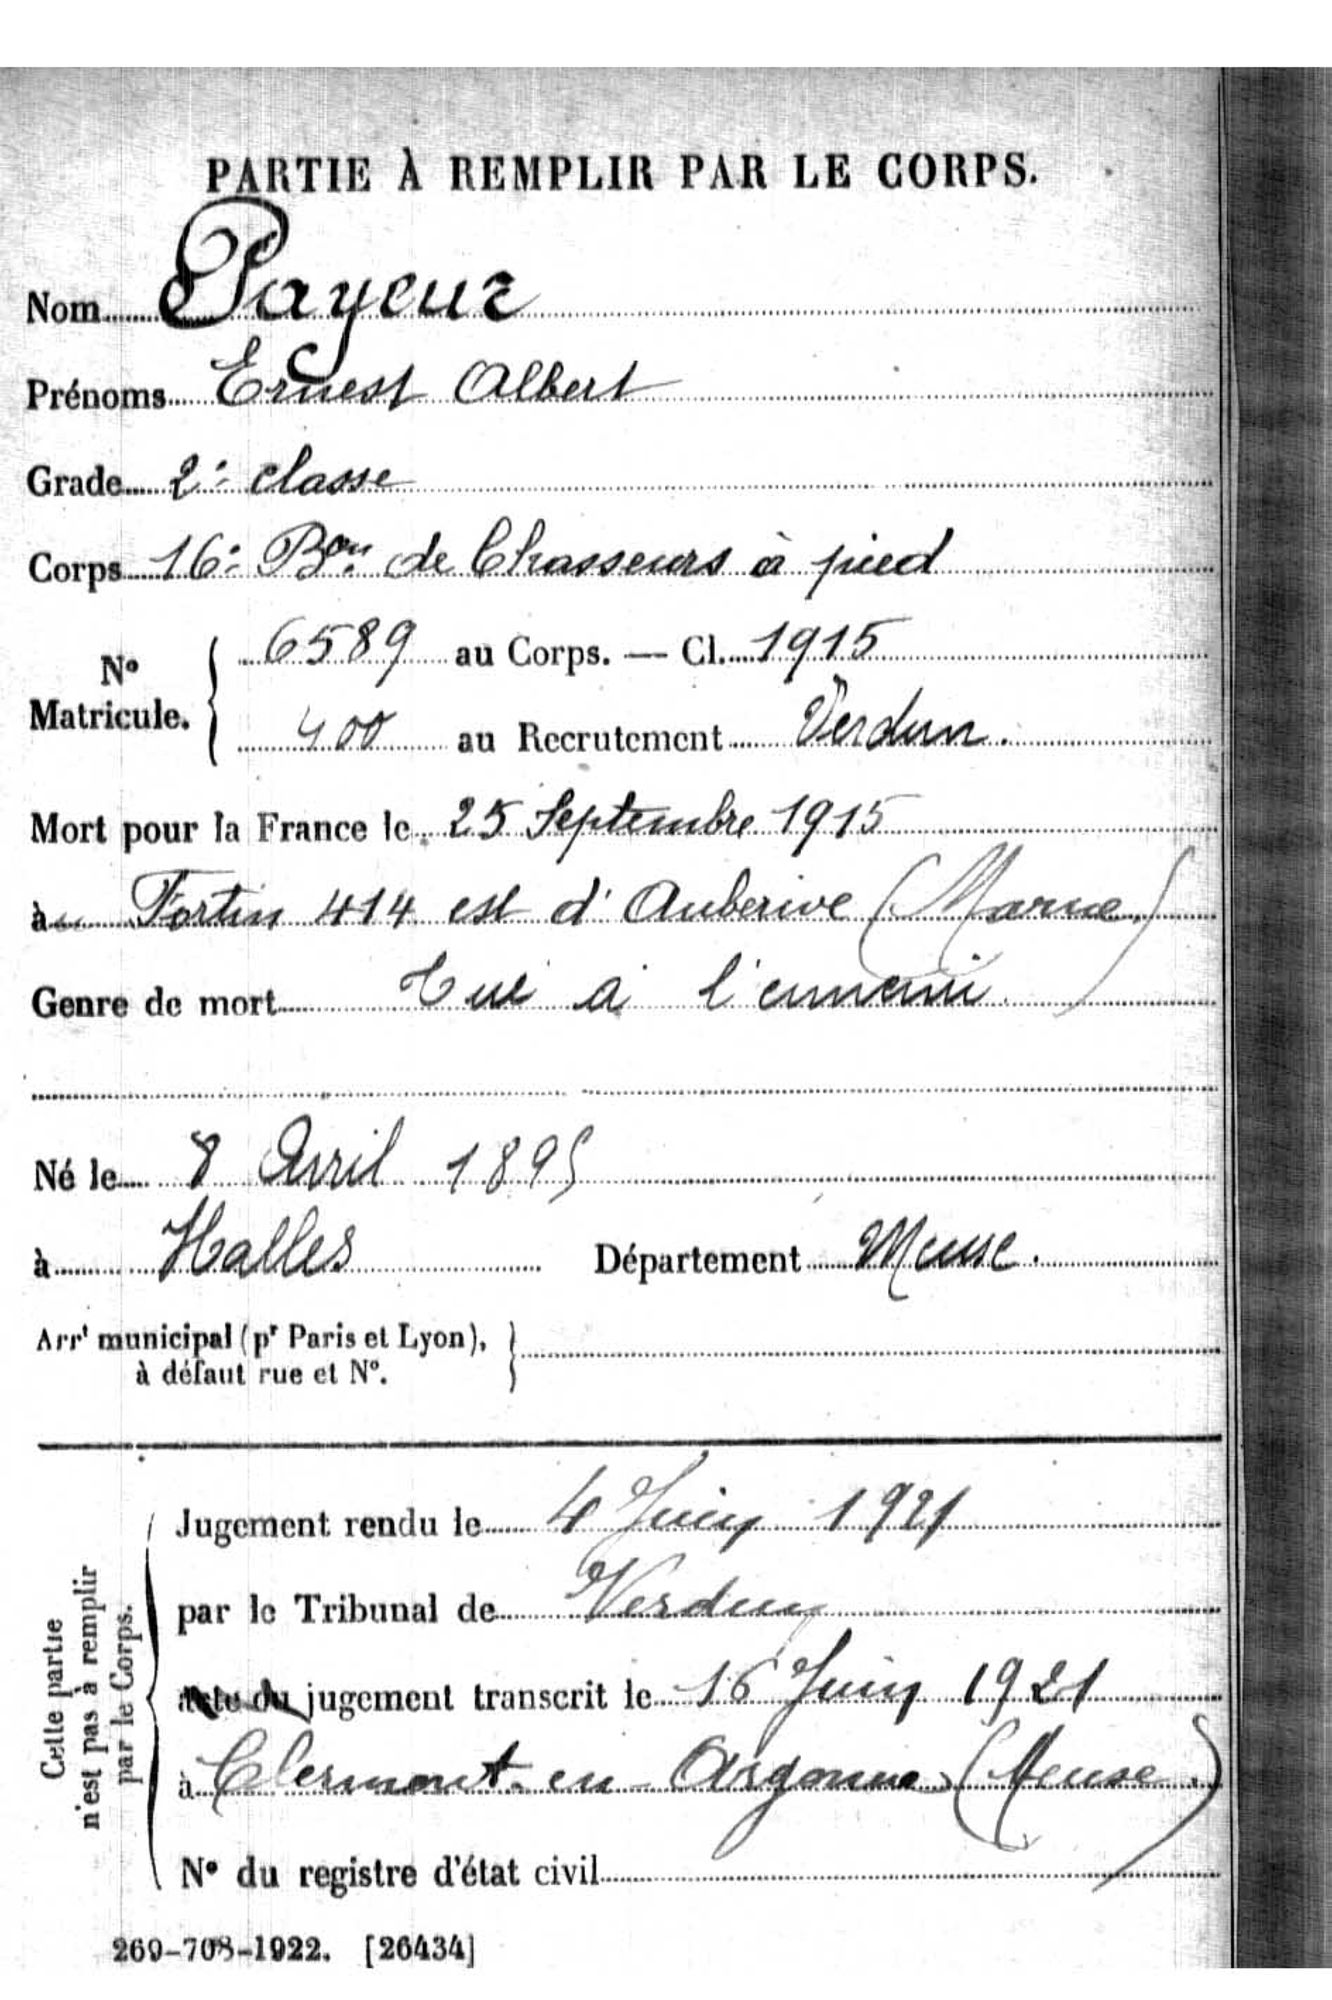 PARTIE À REMPLIR PAR LE CORPS.
Nom Payeur
Prénoms Ernest Albert
Grade 2e classe
Corps 16e Bon de Chasseurs à pied
N° Matricule. { 6589 au Corps. — Cl. 1915
400 au Recrutement Verdun.
Mort pour la France le 25 Septembre 1915
à Fortin 414 est d'Auberive (Marne)
Genre de mort Tué à l'ennemi
Né le 8 Avril 1895
à Halles Département Meuse.
Arrt municipal (pr Paris et Lyon), à défaut rue et N°. }
Cette partie n'est pas à remplir par le Corps.
Jugement rendu le 4 Juin 1921
par le Tribunal de Verdun
acte du jugement transcrit le 16 Juin 1921
à Clermont-en-Argonne (Meuse.)
N° du registre d'état civil
269-708-1922. [26434]